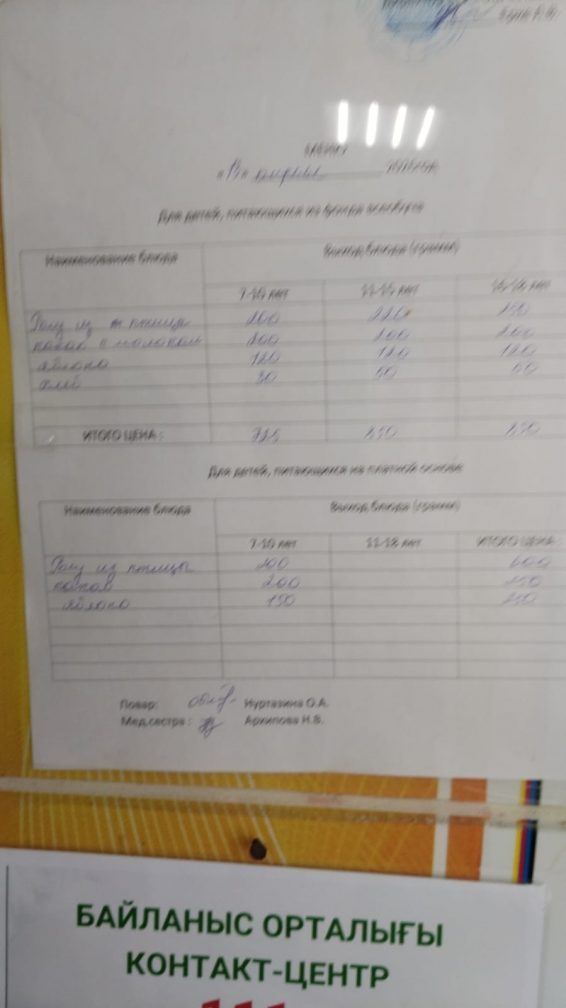 МЕНЮ
Для детей, питающихся из фонда всеобуча
Наименование блюда Выход блюда (грамм)
7-10 лет 11-15 лет 16-18 лет
Рагу из птицы 200 250
какао с молоком 200 200 200
яблоко 120 120 120
хлеб 30 60 60
ИТОГО ЦЕНА : 725 850 850
Для детей, питающихся на платной основе
Наименование блюда Выход блюда (грамм)
7-10 лет 11-18 лет ИТОГО ЦЕНА :
Рагу из птицы 200 600
какао 200 250
яблоко 150 250
Повар: Нуртазина О.А.
Мед.сестра : Архипова Н.В.
БАЙЛАНЫС ОРТАЛЫҒЫ
КОНТАКТ-ЦЕНТР
111